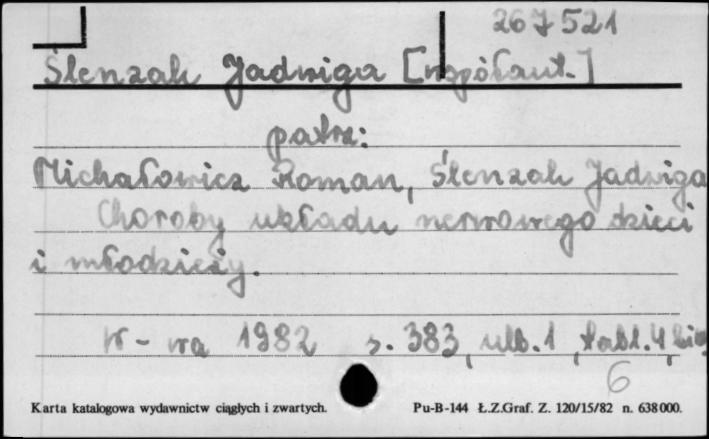 267521
Ślenzak Jadwiga [współaut.]
patrz:
Michałowicz Roman, Ślenzak Jadwiga
Choroby układu nerwowego dzieci
i młodzieży.
W-wa 1982 s. 383, nlb. 1, tabl. 4,
6
Karta katalogowa wydawnictw ciągłych i zwartych. Pu-B-144 Ł.Z.Graf. Z. 120/15/82 n. 638000.